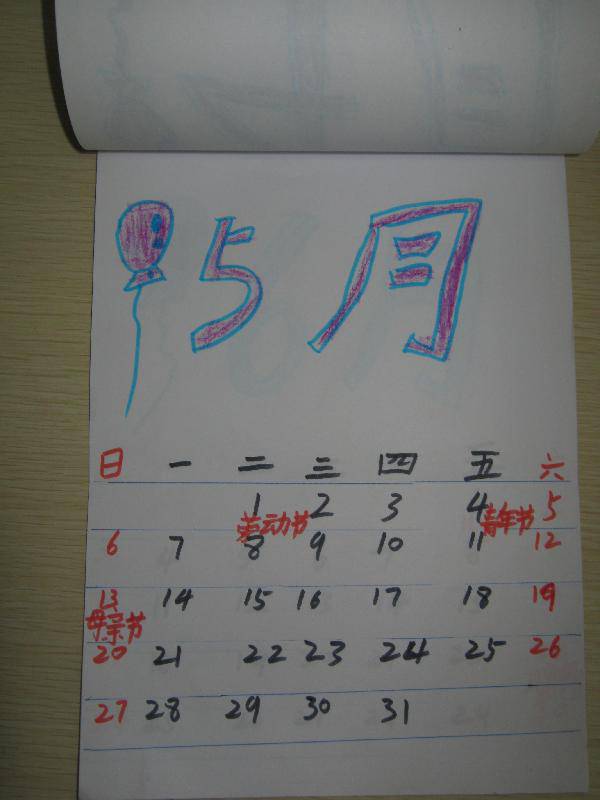 5月
日 一 二 三 四 五 六
1 2 3 4 5
劳动节 青年节
6 7 8 9 10 11 12
13 14 15 16 17 18 19
母亲节
20 21 22 23 24 25 26
27 28 29 30 31